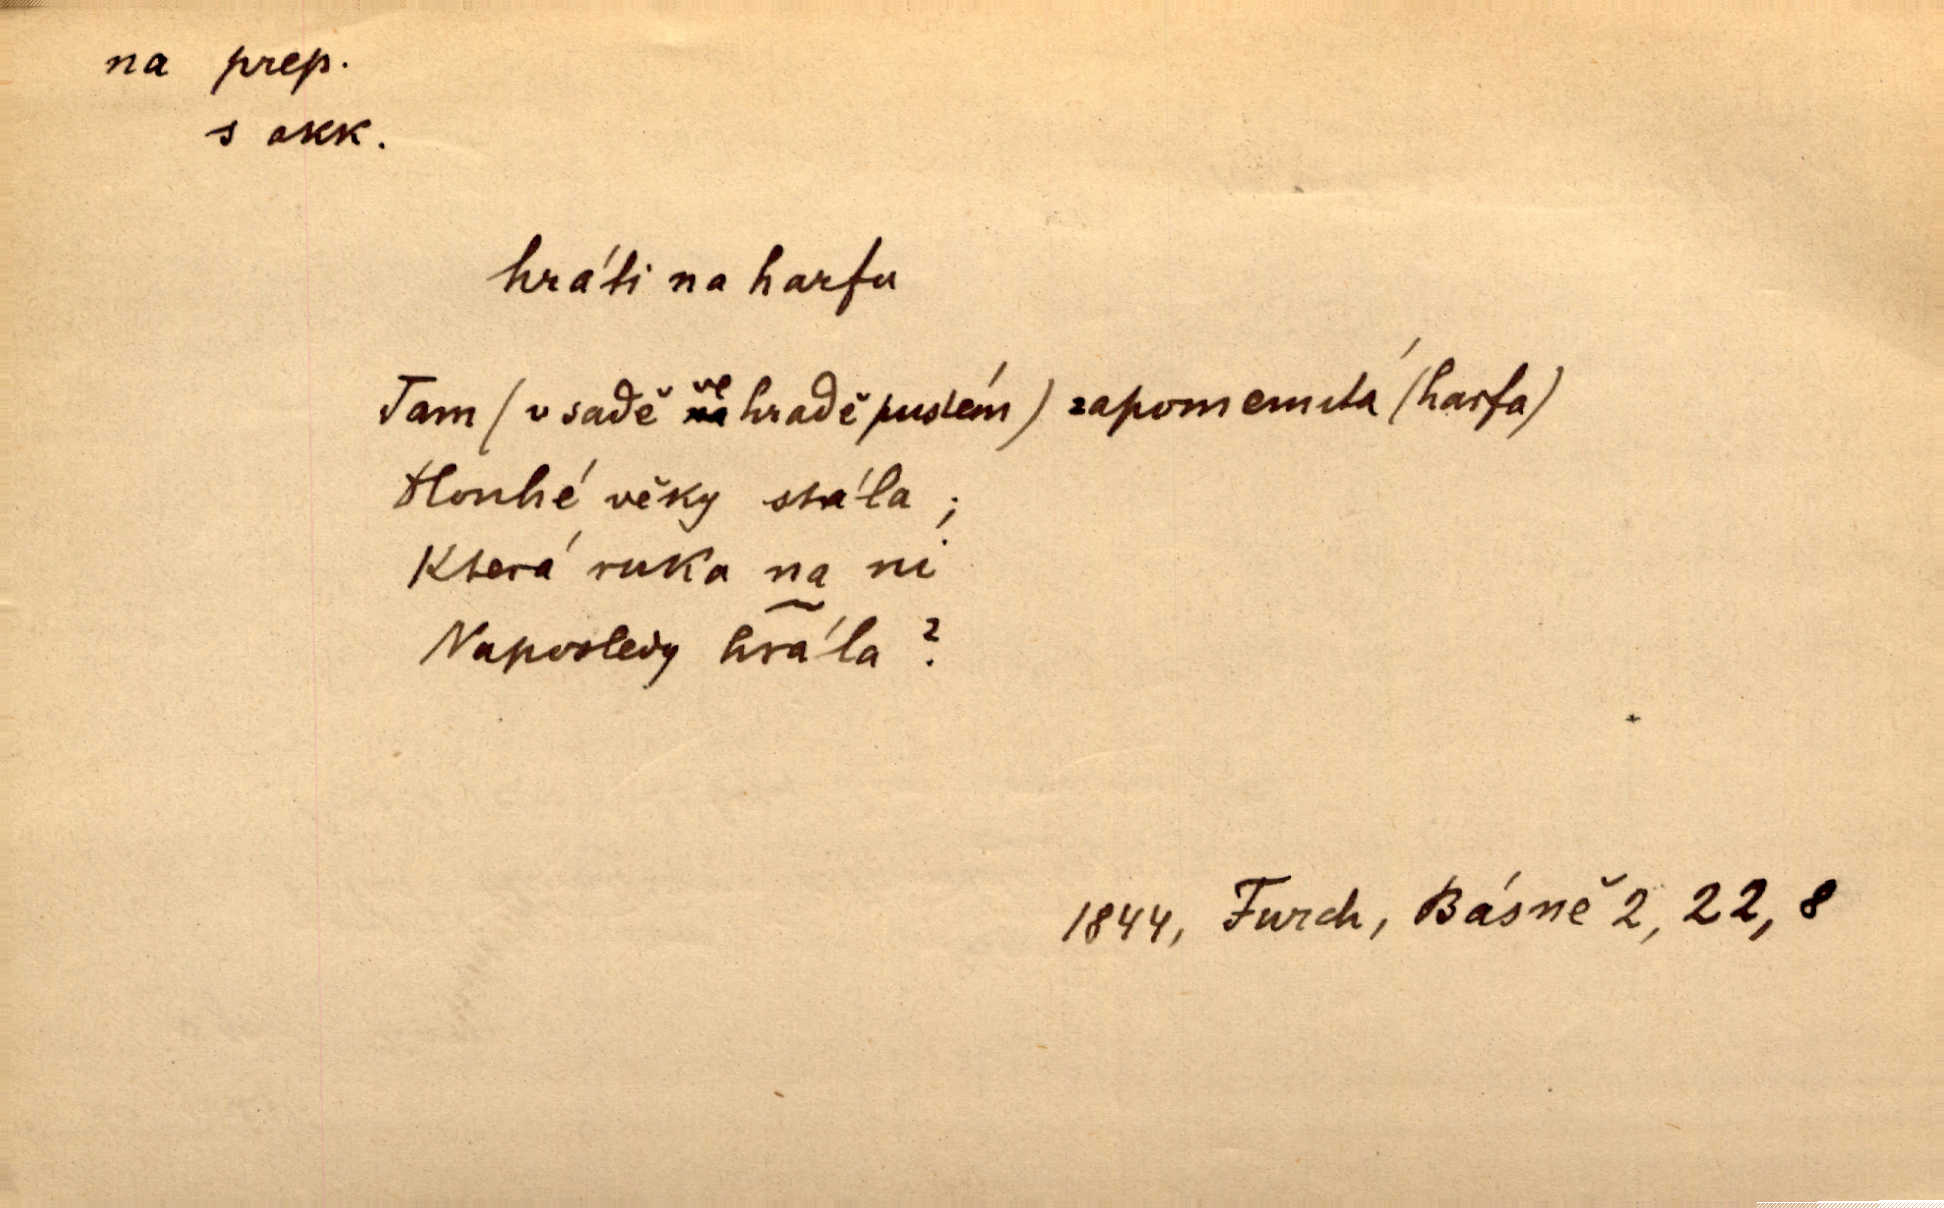 na prep.
s akk.
hráti na harfu
Tam (v sadě ve hradě pustém) zapomenutá (harfa)
Dlouhé věky stála;
Která ruka na ni
Naposledy hrála?
1844, Furch, Básně 2, 22, 8